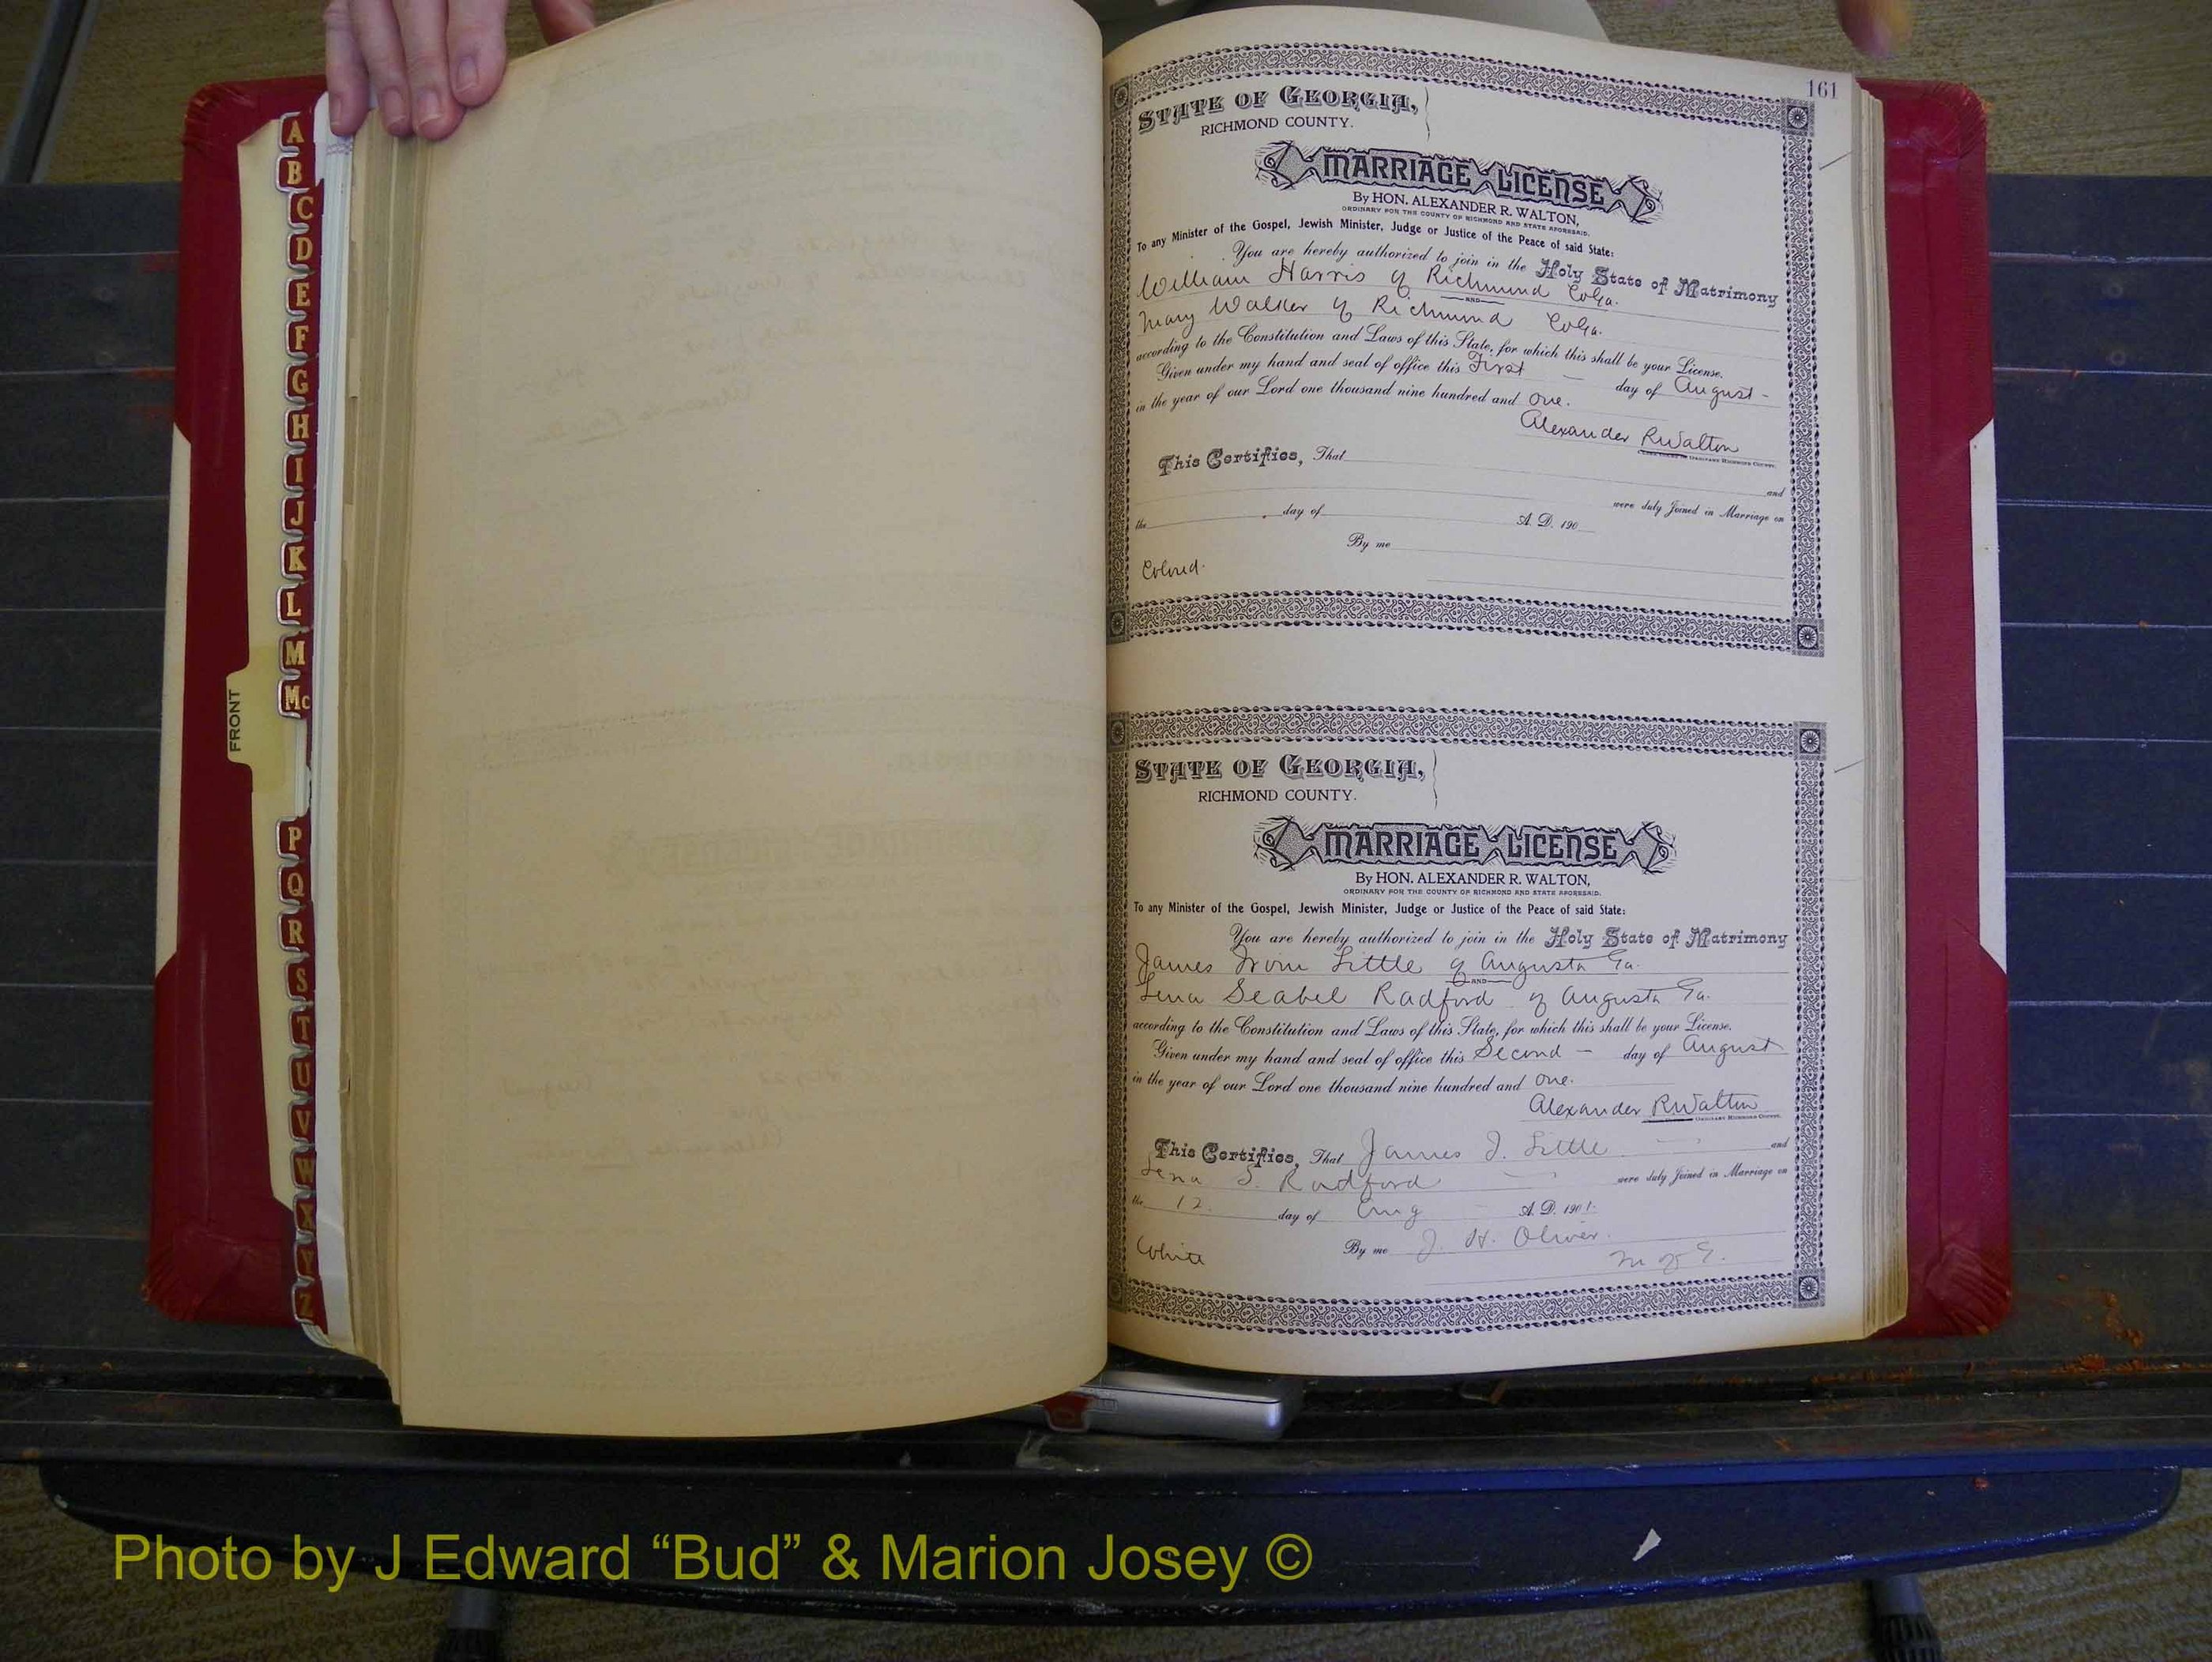 A
B
C
D
E
F
G
H
I
J
K
L
M
Mc
FRONT
P
Q
R
S
T
U
V
W
X
Y
Z
161
STATE OF GEORGIA,
RICHMOND COUNTY.
MARRIAGE LICENSE
By HON. ALEXANDER R. WALTON,
ORDINARY FOR THE COUNTY OF RICHMOND AND STATE AFORESAID.
To any Minister of the Gospel, Jewish Minister, Judge or Justice of the Peace of said State:
You are hereby authorized to join in the Holy State of Matrimony
William Harris of Richmond Co Ga.
AND
Mary Walker of Richmond Co Ga.
according to the Constitution and Laws of this State, for which this shall be your License.
Given under my hand and seal of office this First — day of August -
in the year of our Lord one thousand nine hundred and one.
Alexander R Walton
ORDINARY RICHMOND COUNTY.
This Certifies, That
and
were duly Joined in Marriage on
the day of A. D. 190
By me
Colored.
STATE OF GEORGIA,
RICHMOND COUNTY.
MARRIAGE LICENSE
By HON. ALEXANDER R. WALTON,
ORDINARY FOR THE COUNTY OF RICHMOND AND STATE AFORESAID.
To any Minister of the Gospel, Jewish Minister, Judge or Justice of the Peace of said State:
You are hereby authorized to join in the Holy State of Matrimony
James Little of Augusta Ga.
AND
Lena Seabel Radford of Augusta Ga.
according to the Constitution and Laws of this State, for which this shall be your License.
Given under my hand and seal of office this Second — day of August
in the year of our Lord one thousand nine hundred and one.
Alexander R Walton
ORDINARY RICHMOND COUNTY.
This Certifies, That James I. Little and
Lena S. Radford were duly Joined in Marriage on
the 12. day of Aug A. D. 1901.
White By me J. H. Oliver.
M of G.
Photo by J Edward “Bud” & Marion Josey ©